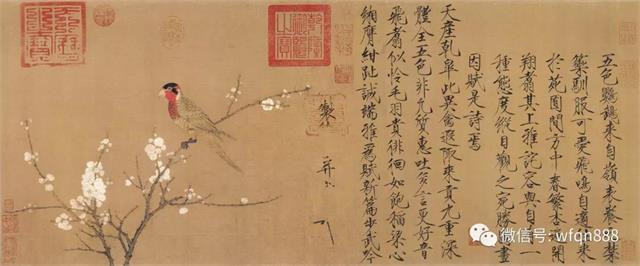 五色鸚鵡來自嶺表養禁
籞馴服可愛飛鳴自適往來
於苑囿間方中春繁杏開
翔翥其上雅詫容與自一
種態度縱目觀之宛勝畫
因賦是詩焉
天產乾皐此異禽遐陬來貢九重深
體全五色非凡質惠吐多言更好音
飛翥似憐毛羽貴徘徊如飽稻粱心
緗膺紺趾誠端雅為賦新篇步武吟
製
并
微信号: wfqn888